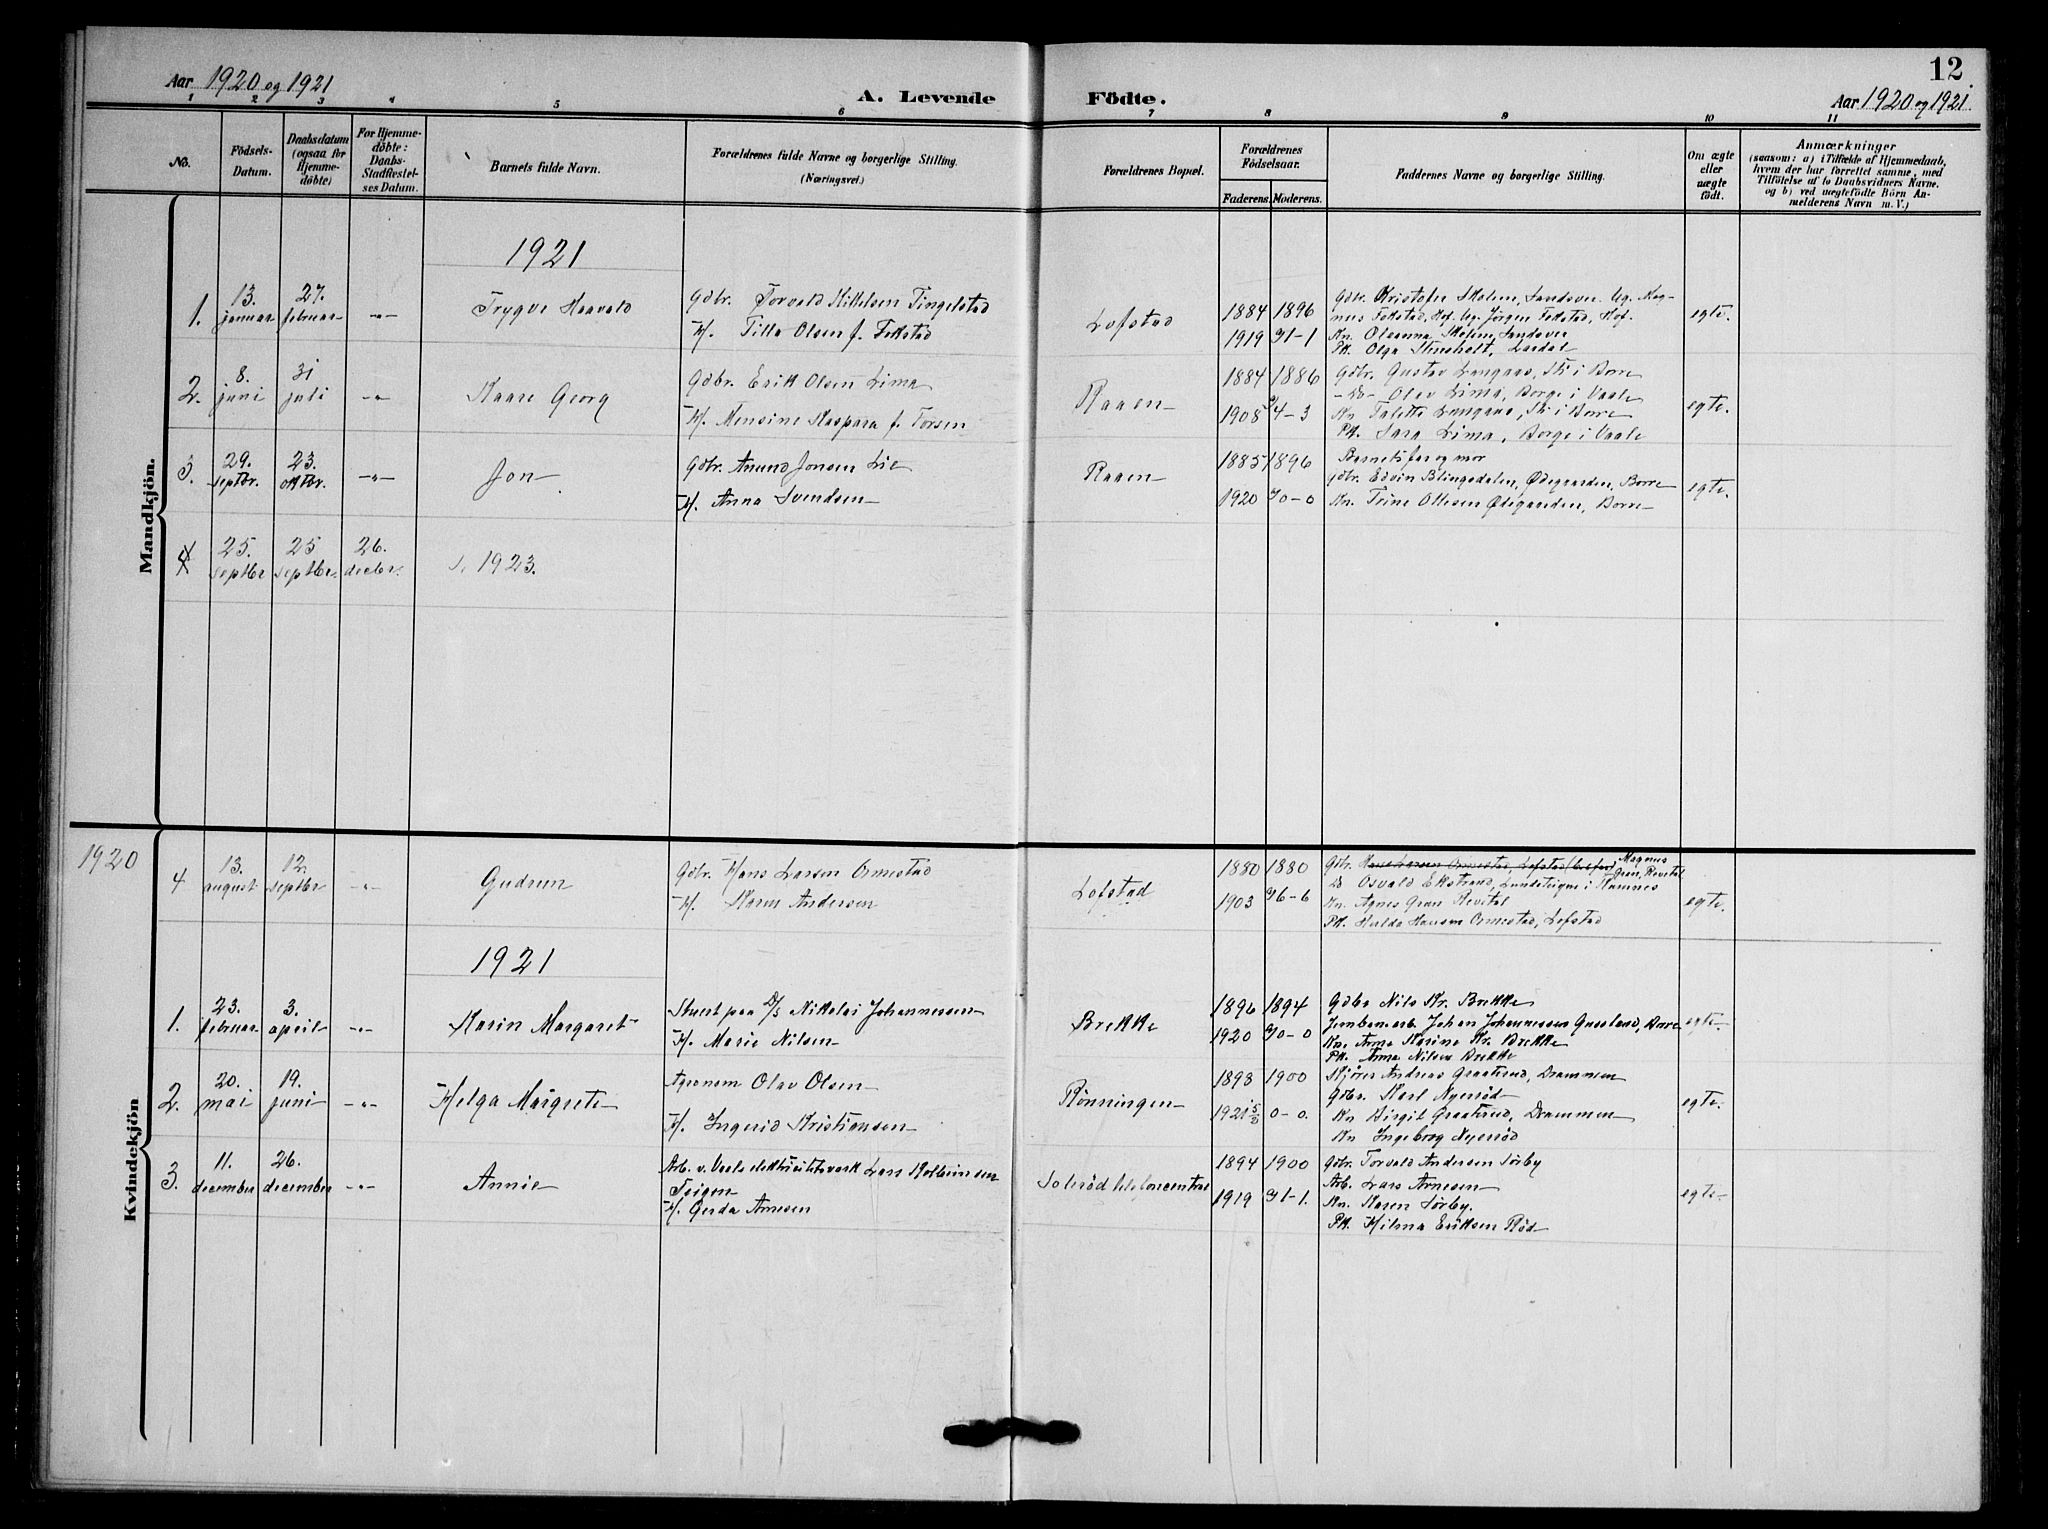 Aar 1920 og 1921
A. Levende Födte.
12
Aar 1920 og 1921
1 2 3 4 5 6 7 8 9 10 11
No.
Födsels-
Datum.
Daabsdatum
(ogsaa for
Hjemme-
döbte)
For Hjemme-
döbte:
Daabs-
Stadfæstel-
ses Datum.
Barnets fulde Navn.
Forældrenes fulde Navne og borgerlige Stilling.
(Næringsvei.)
Forældrenes Bopæl.
Forældrenes
Födselsaar.
Faderens. Moderens.
Faddernes Navne og borgerlige Stilling.
Om ægte
eller
uægte
födt.
Anmærkninger
(saasom: a) i Tilfælde af Hjemmedaab,
hvem der har forrettet samme, med
Tilföielse af to Daabsvidners Navne.
og b) ved uægtefödte Börn An-
melderens Navn m. V.)
Mandkjön.
1921
1. 13. januar 27. februar -"- Trygve Haavald
Gdbr. Torvald Kittelsen Tingelstad
H. Tilla Olsen f. Fekstad
Lofstad
1884 1896
1919 31-1
Gdbr. Kristofer Skolem, Sandsver. Ug. Mag-
nus Fekstad, Hof. Ug. Jörgen Fekstad, Hof.
Kn. Oleanna Skolem, Sandsver
Pk. Olga Stusholt, Lardal
egte.
2. 8. juni 31 juli -"- Kaare Georg
Gdbr. Erik Olsen Lima
H. Mensine Kaspara f. Torsen
Raaen
1884 1886
1908 4-3
Gdbr. Gustav Langaas, Sk i Borre
-Do- Olav Lima, Borge i Vaale
Kn. Talette Langaas, Sk i Borre
Pk. Sara Lima, Borge i Vaale
egte.
3. 29. septbr. 23. oktbr. -"- Jon
Gdbr. Anund Jonsen Lie
H. Anna Svendsen
Raaen
1885 1896
1920 30-0
Barnets far og mor
gdbr. Edvin Blingsdalen, Ødegaarden, Borre
Kn. Trine Ottesen Ødegaarden, Borre
egte.
4 25. septbr 25 septbr. 26. decbr. s. 1923.
Kvindekjön
1920
4 13. august 12. septbr -"- Gudrun
Gdbr. Hans Larsen Ormestad
H. Karen Andersen
Lofstad
1880 1880
1903 36-6
Gdbr. Hans Larsen Ormestad, Lofstad Magnus
Gran, Revetal
Do Osvald Ekstrand, Lundeteigen i Ramnes
Kn. Agnes Gran Revetal
Pk. Hulda Hansen Ormestad, Lofstad
egte.
1921
1. 23. februar 3. april -"- Karin Margaret
Stuert paa D/S Nikolai Johannessen
H. Marie Nilsen
Brekke
1896 1894
1920 30-0
Gdbr Nils Kr. Brekke
Jernbanearb. Johan Johannessen Guslund, Borre
Kn. Anna Karine Kr. Brekke
Pk. Anna Nilsen Brekke
egte
2. 20. mai 19. juni -"- Helga Margrete
Agronom Olav Olsen
H. Ingerid Kristiansen
Rønningen
1893 1900
1921 5/2 0-0.
Skjører Andreas Graatrud, Drammen
Gdbr. Karl Nyerød
Kn Birgit Graatrud, Drammen
Kn Ingeborg Nyerød
egte.
3. 11. december 26. december -"- Annie
Arb. v. Vaale elektricitetsverk Lars Kolbeinsen
Teigen
H. Gerda Arnesen
Solerød telefoncentral
1894 1900
1919 31-1.
Gdbr. Torvald Andersen Sørby
Arb. Lars Arnesen
Kn. Karen Sørby.
Pk. Hilma Eriksen Rød
egte